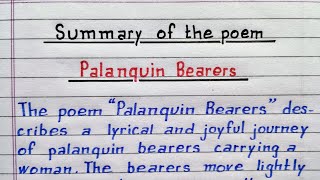 Summary of the poem
Palanquin Bearers
The poem "Palanquin Bearers" des-
cribes a lyrical and joyful journey
of palanquin bearers carrying a
woman. The bearers move lightly